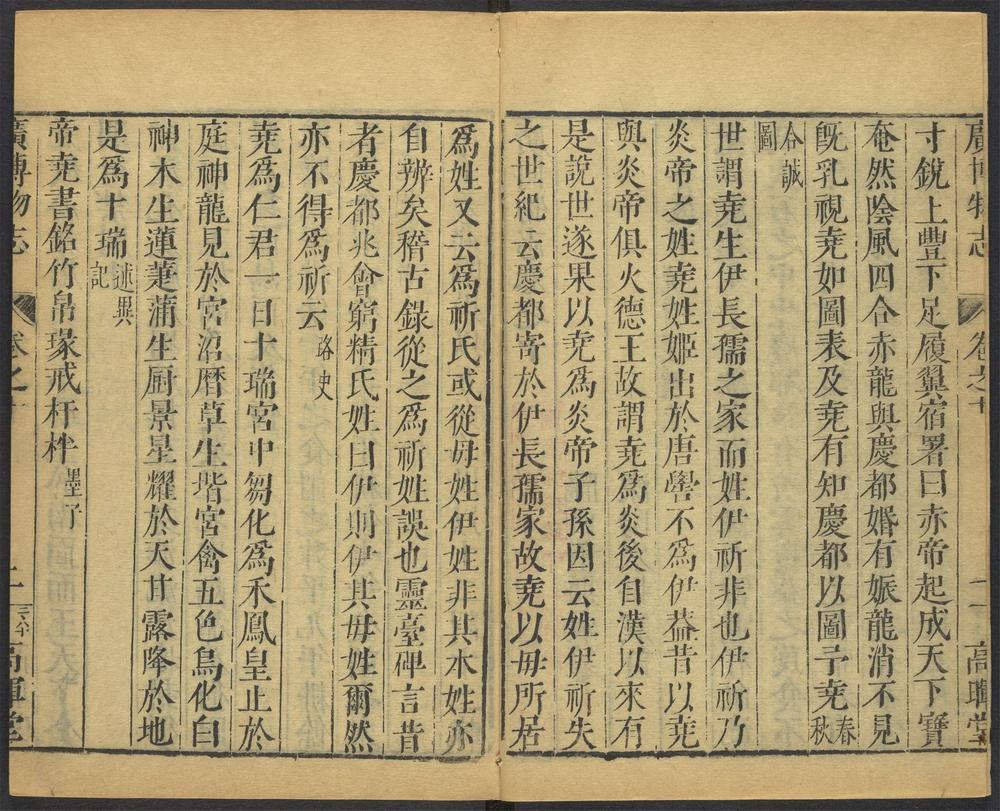 廣博物志 卷之十 一 高暉堂
寸銳上豐下足履翼宿署曰赤帝起成天下寶
奄然陰風四合赤龍與慶都婚有娠龍消不見
旣乳視堯如圖表及堯有知慶都以圖予堯春秋
合誠圖
世謂堯生伊長孺之家而姓伊祈非也伊祈乃
炎帝之姓堯姓姬出於唐嚳不爲伊葢昔以堯
與炎帝俱火德王故謂堯爲炎後自漢以來有
是說世遂果以堯爲炎帝子孫因云姓伊祈失
之世紀云慶都寄於伊長孺家故堯以毋所居
爲姓又云爲祈氏或從毋姓伊姓非其本姓亦
自辨矣稽古錄從之爲祈姓誤也靈臺碑言昔
者慶都兆會窮精氏姓曰伊則伊其毋姓爾然
亦不得爲祈云路史
堯爲仁君一日十瑞宮中芻化爲禾鳳皇止於
庭神龍見於宮沼曆草生堦宮禽五色烏化白
神木生蓮萐蒲生廚景星耀於天甘露降於地
是爲十瑞述異記
帝堯書銘竹帛瑑戒杅柈墨子
廣博物志 卷之十 高暉堂